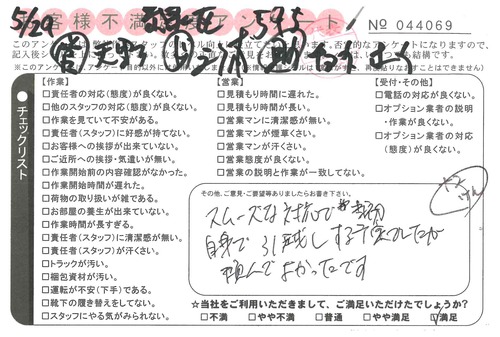 5/29
お客様不満足度アンケート
No 044069
チェックリスト
【作業】
□責任者の対応(態度)が良くない。
□他のスタッフの対応(態度)が良くない。
□作業を見ていて不安がある。
□責任者(スタッフ)に好感が持てない。
□お客様への挨拶が出来ていない。
□ご近所への挨拶・気遣いが無い。
□作業開始前の内容確認がなかった。
□作業開始時間が遅れた。
□荷物の取り扱いが雑である。
□お部屋の養生が出来ていない。
□作業時間が長すぎる。
□責任者(スタッフ)に清潔感が無い。
□責任者(スタッフ)が汗くさい。
□トラックが汚い。
□梱包資材が汚い。
□運転が不安(下手)である。
□靴下の履き替えをしてない。
□スタッフにやる気がみられない。
【営業】
□見積もり時間に遅れた。
□見積もり時間が長い。
□営業マンに清潔感が無い。
□営業マンが煙草くさい。
□営業マンが汗くさい。
□営業態度が良くない。
□営業の説明と作業が一致してない。
【受付・その他】
□電話の対応が良くない。
□オプション業者の説明
・作業が良くない。
□オプション業者の対応
(態度)が良くない。
その他、ご意見・ご要望等ありましたらお書き下さい。
スムーズな対応で
自身で引越しする予定でしたが
頼んでよかったです
☆当社をご利用いただきまして、ご満足いただけたでしょうか?
□不満 □やや不満 □普通 □やや満足 □満足